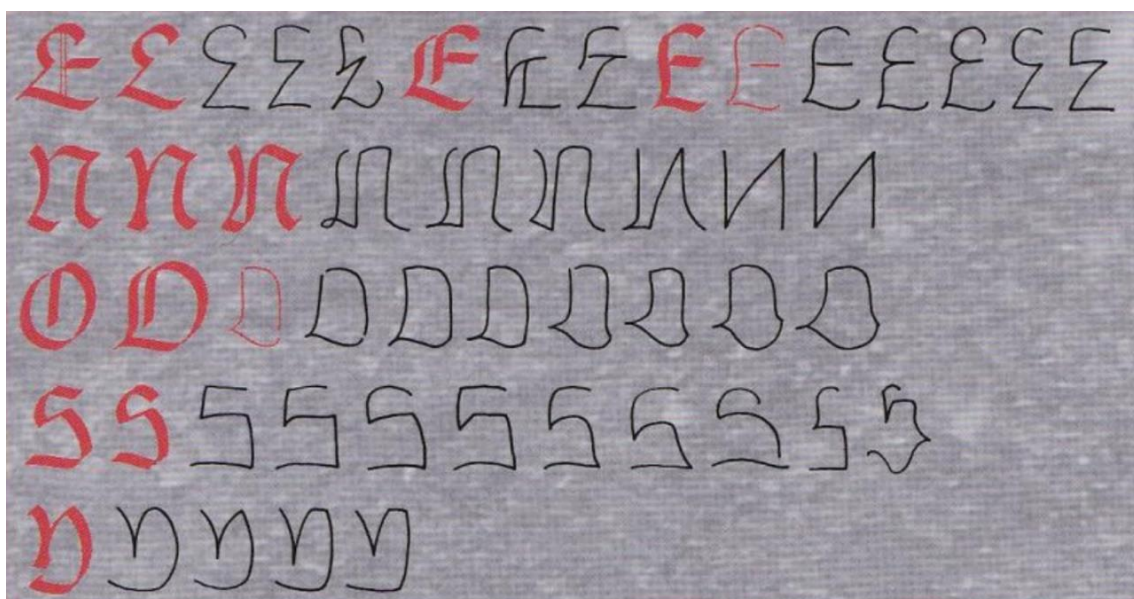 E E E E E E E E E E E E E E E
N N N N N N N N N
O O O O O O O O O O
S S S S S S S S S S S
Y Y Y Y Y